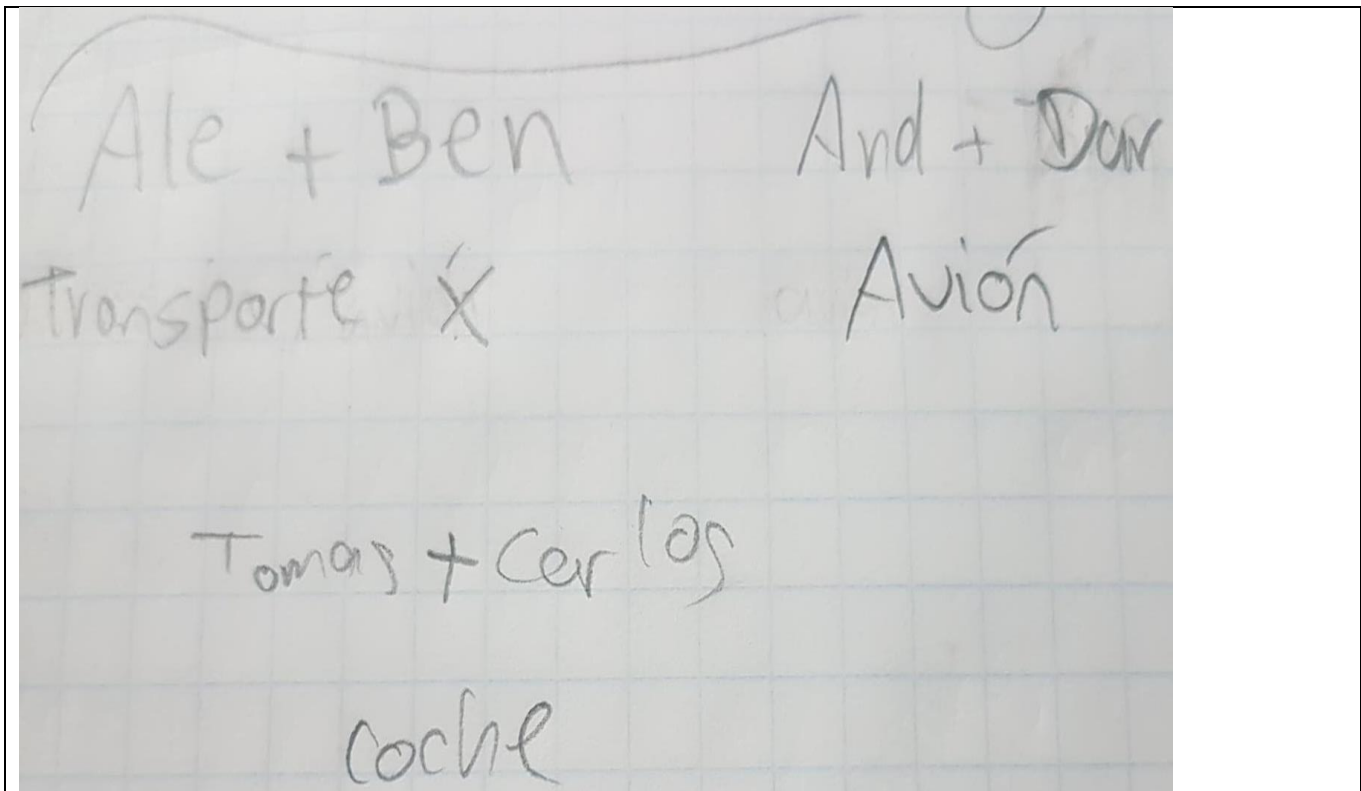 Ale + Ben
And + Dar
Transporte X
Avión
Tomas + Carlos
coche